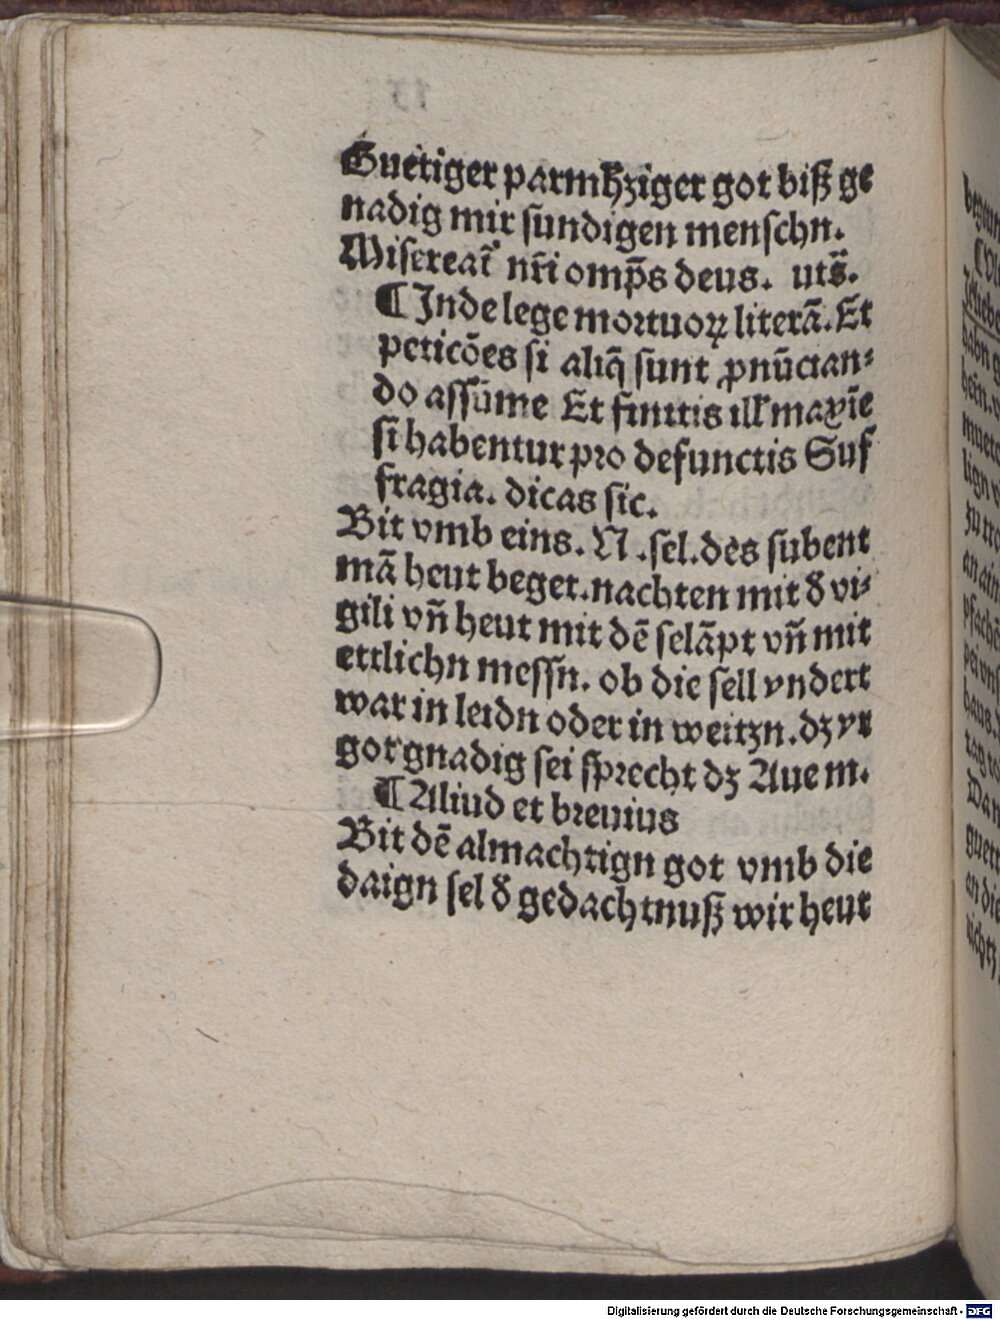 Guetiger parmhꜩiger got biß ge
nadig mir sundigen menschn.
Misereat᷑ nr̄i omp̄s deus. utš.
¶ Inde lege mortuoꝝ literā. Et
peticōes si aliq̄ sunt ꝓnūcian⸗
do assūme Et finitis ill' maxīe
si habentur pro defunctis Suf
fragia. dicas sic.
Bit vmb eins. N. sel. des subent
mā heut beget. nachten mit ð vi⸗
gili vn̄ heut mit dē selāpt vn̄ mit
ettlichn messn. ob die sell yndert
war in leidn oder in weitzn. dz yr
got gnadig sei sprecht dz Aue m.
¶ Aliud et breuius
Bit dē almachtign got vmb die
daign sel ð gedachtnuß wir heut
Digitalisierung gefördert durch die Deutsche Forschungsgemeinschaft - DFG